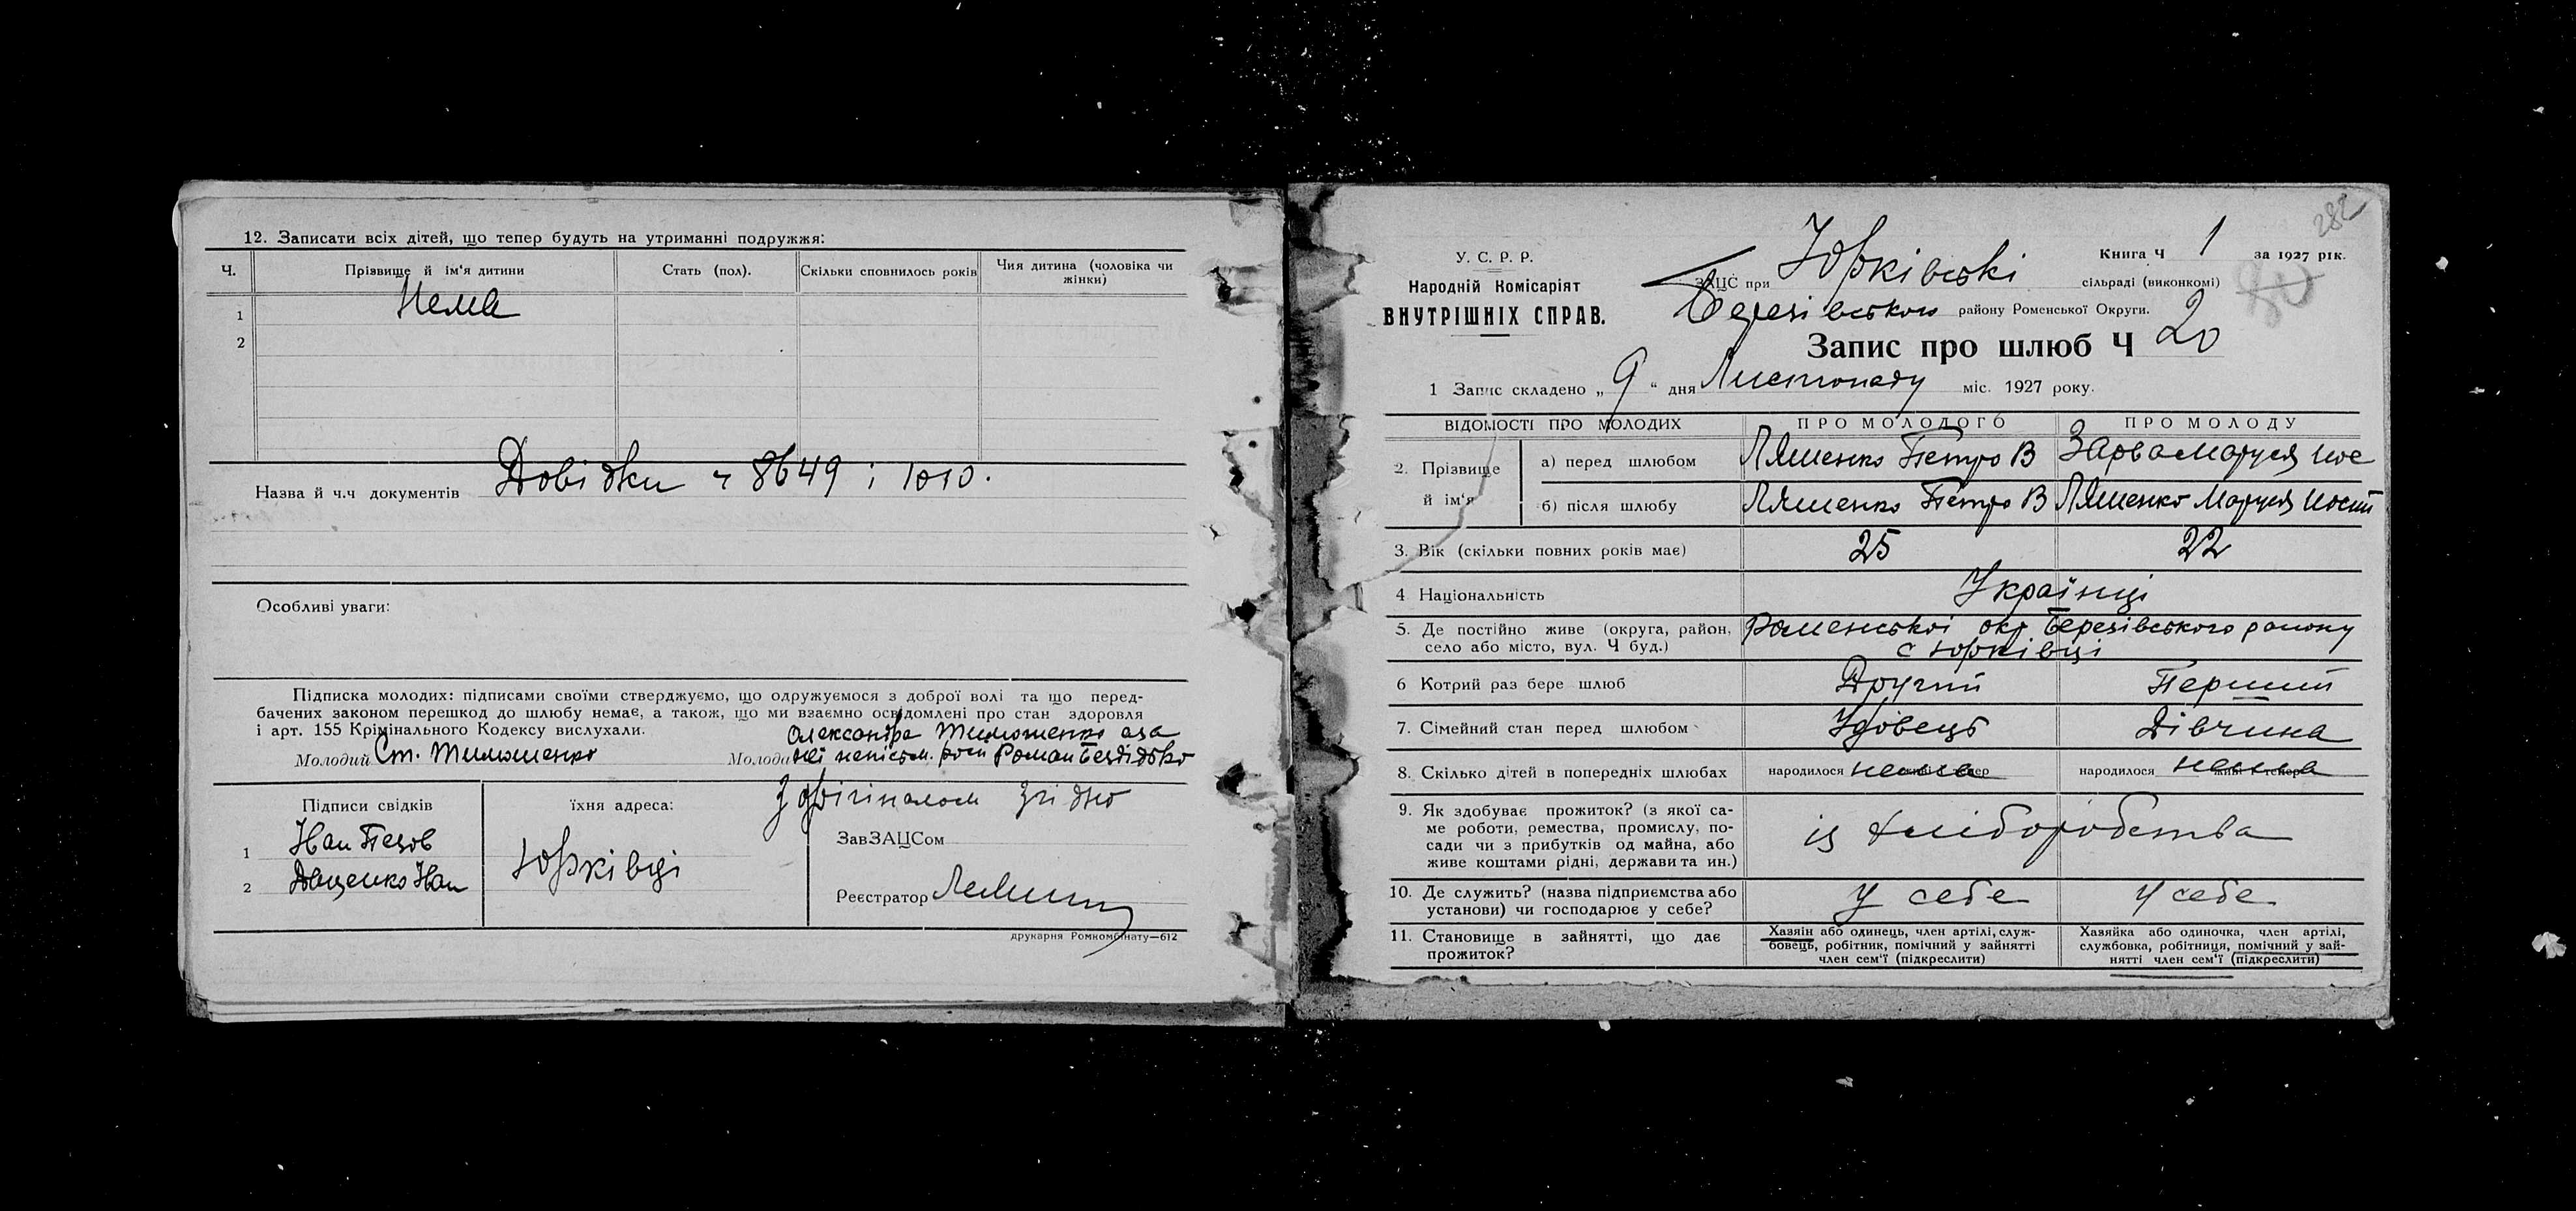 12. Записати всіх дітей, що тепер будуть на утриманні подружжя:
Ч. Прізвище й ім'я дитини Стать (пол). Скільки сповнилось років Чия дитина (чоловіка чи жінки)
1 Нема
2
Назва й ч.ч документів Довідки ч 8649 і 1010.
Особливі уваги:
Підписка молодих: підписами своїми стверджуємо, що одружуємося з доброї волі та що перед-
бачених законом перешкод до шлюбу немає, а також, що ми взаємно освідомлені про стан здоровля
і арт. 155 Крімінального Кодексу вислухали.
Олександра Тимошенко а за
Молодий Ст. Тимошенко Молода неї неписьм. росп Роман Бездідько
З орігіналом згідно
Підписи свідків їхня адреса:
1 Іван Пезов
ЗавЗАЦСом
Юрківці
2 Яценко Іван
Реєстратор
друкарня Ромкомбінату—612
282
У. С. Р. Р.
Народній Комісаріят
ВНУТРІШНІХ СПРАВ.
Книга Ч 1 за 1927 рік.
ЗАЦС при Юрківські сільраді (виконкомі)
Березівського району Роменської Округи.
Запис про шлюб Ч 20
1 Запис складено „ 9 “ дня Листопаду міс. 1927 року.
ВІДОМОСТІ ПРО МОЛОДИХ ПРО МОЛОДОГО ПРО МОЛОДУ
2. Прізвище й ім'я
а) перед шлюбом Ляшенко Петро В Зарва Маруся Иос
б) після шлюбу Ляшенко Петро В Ляшенко Маруся Иосип
3. Вік (скільки повних років має) 25 22
4 Національність Українці
5. Де постійно живе (округа, район, Роменської окр Березівського району
село або місто, вул. Ч буд.) с Юрківці
6 Котрий раз бере шлюб Другий Перший
7. Сімейний стан перед шлюбом Удовець Дівчина
8. Скілько дітей в попередніх шлюбах народилося нема народилося нема
9. Як здобуває прожиток? (з якої са-
ме роботи, ремества, промислу, по-
сади чи з прибутків од майна, або
живе коштами рідні, держави та ин.)
із хліборобства
10. Де служить? (назва підприємства або
установи) чи господарює у себе?
у себе у себе
11. Становище в зайнятті, що дає
прожиток?
Хазяїн або одинець, член артілі, служ-
бовець, робітник, помічний у зайнятті
член сем'ї (підкреслити)
Хазяйка або одиночка, член артілі,
службовка, робітниця, помічний у зай-
нятті член сем'ї (підкреслити)